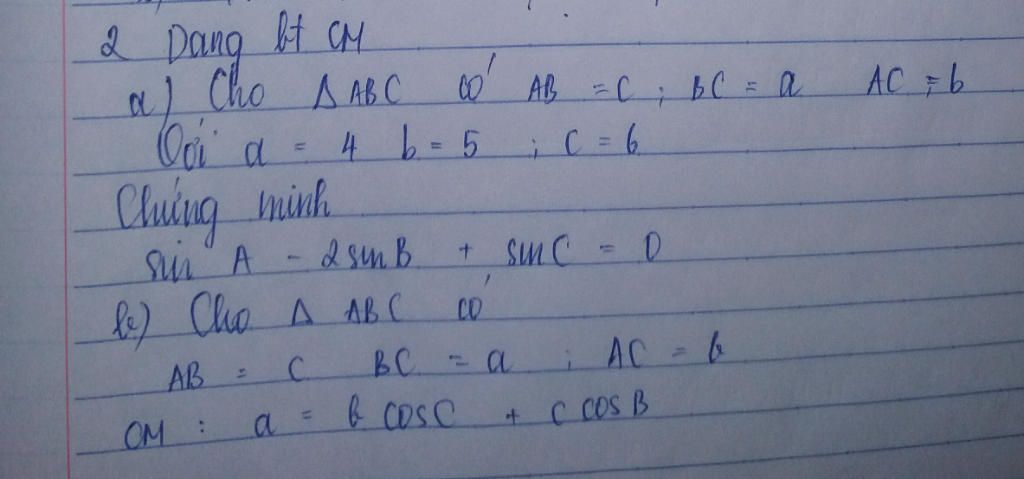 2 Dạng bt CM
a) Cho Δ ABC có AB = c ; BC = a AC = b
Với a = 4 b = 5 ; c = 6
Chứng minh
sin A - 2 sin B + sin C = 0
b) Cho Δ ABC có
AB = c BC = a ; AC = b
CM : a = b cos C + c cos B